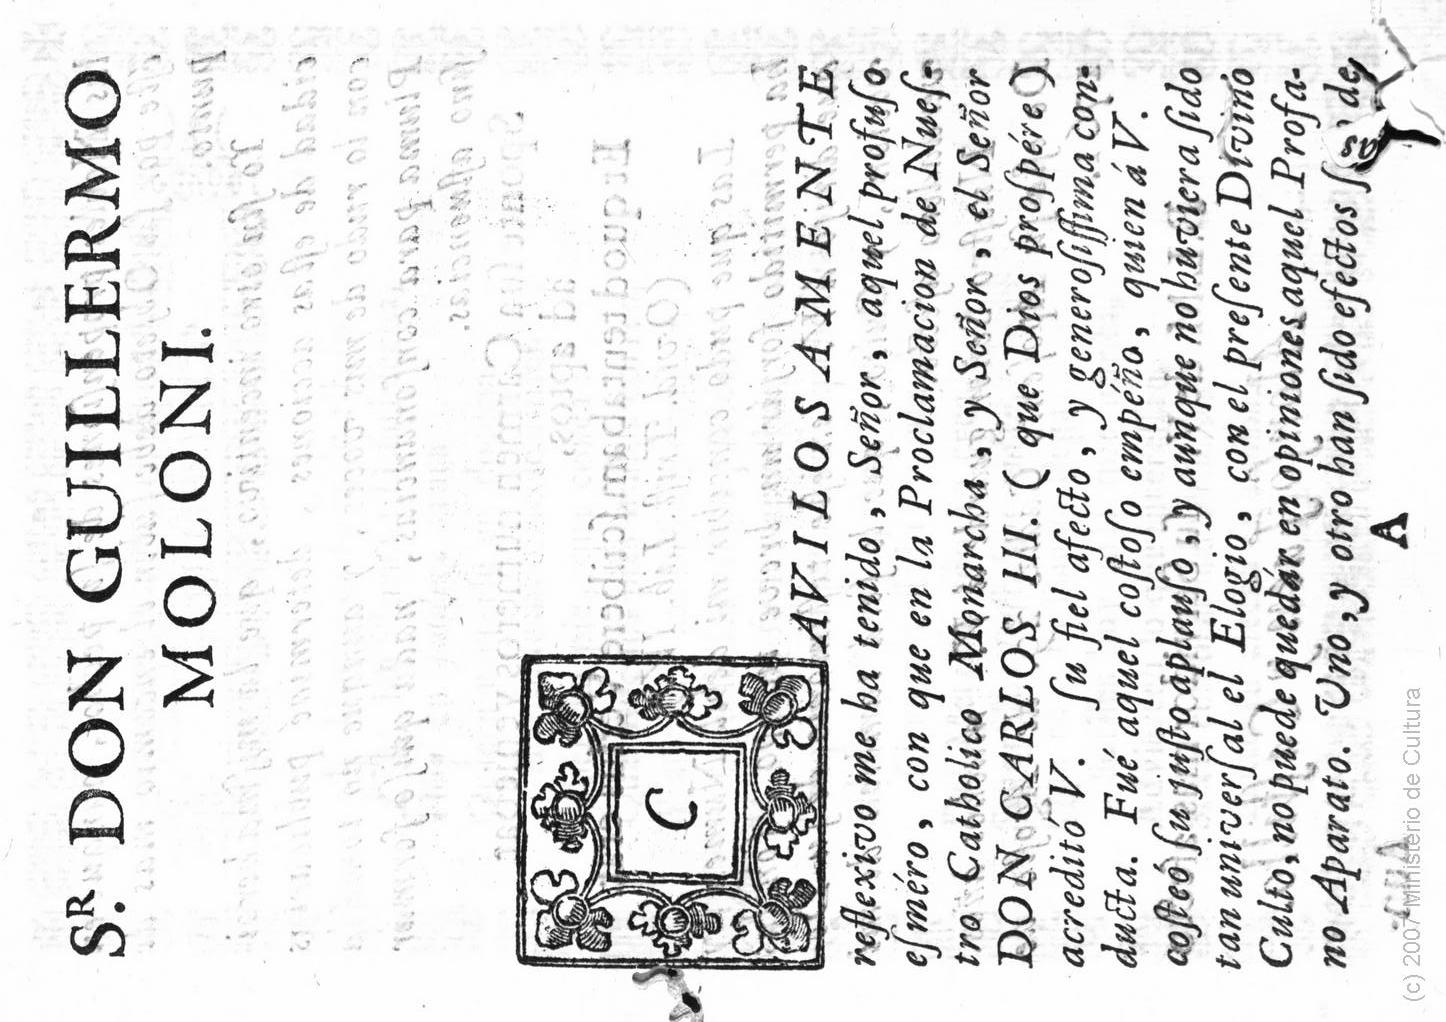 Sᴿ. DON GUILLERMO
MOLONI.
CAVILOSAMENTE
reflexivo me ha tenido, Señor, aquel profuso
eſméro, con que en la Proclamacion de Nueſ-
tro Catholico Monarcha, y Señor, el Señor
DON CARLOS III. (que Dios proſpére)
acreditó V. ſu fiel afecto, y generoſiſſima con-
ducta. Fué aquel coſtoſo empéño, quien á V.
coſteó ſu juſto aplauſo, y aunque no huviera ſido
tam univerſal el Elogio, con el preſente Divino
Culto, no puede quedár en opiniones aquel Profa-
no Aparato. Uno, y otro han ſido efectos de
A
(c) 2007 Ministerio de Cultura